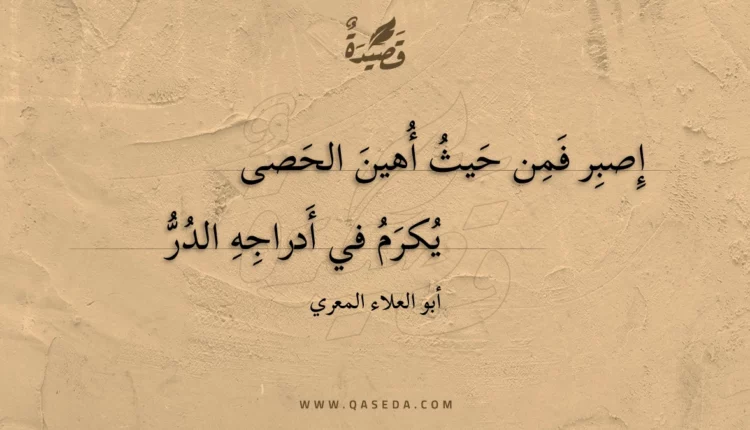 قَصِيْدَةٌ
إِصبِر فَمِن حَيثُ أُهينَ الحَصى
يُكرَمُ في أَدراجِهِ الدُرُّ
أبو العلاء المعري
WWW.QASEDA.COM